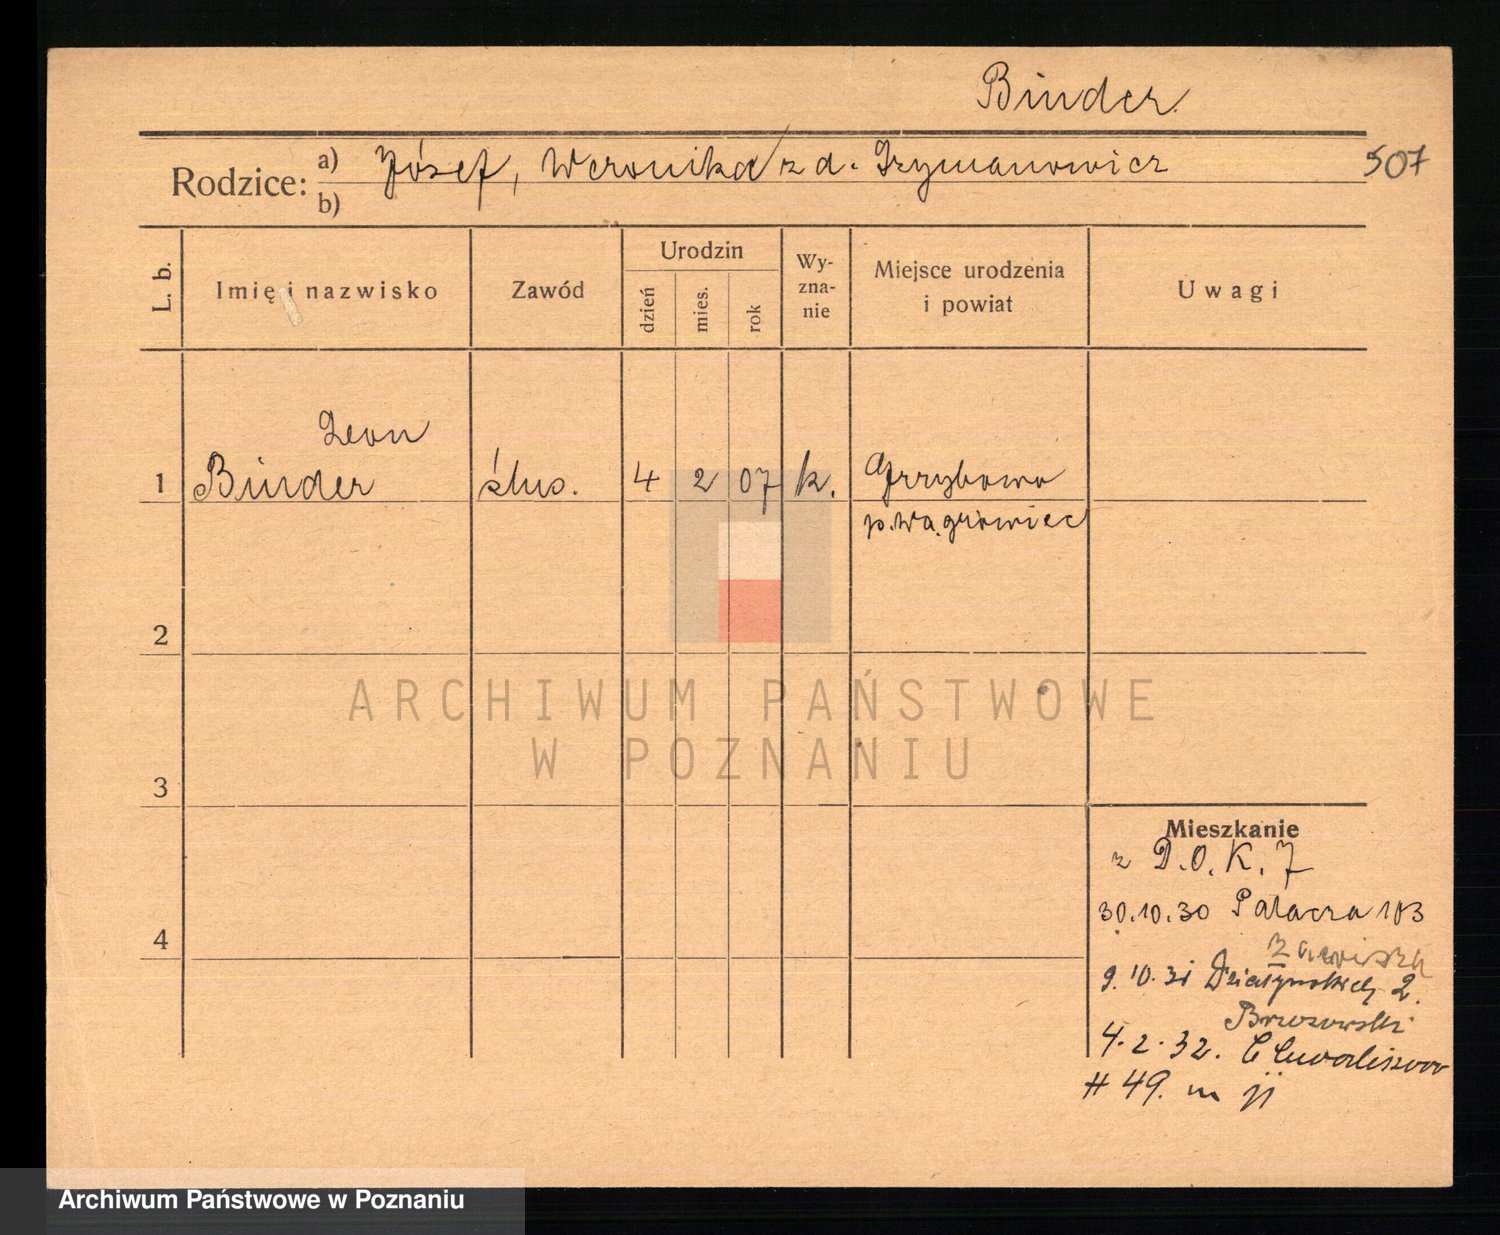 Binder
Rodzice: a) Józef, Weronika z d. Szymanowicz 507
b)
L. b. Imię i nazwisko Zawód Urodzin dzień mies. rok Wyznanie Miejsce urodzenia i powiat Uwagi
Leon
1 Binder ślus. 4 2 07 k. Grzybowo
p. Wągrowiec
2
ARCHIWUM PAŃSTWOWE
W POZNANIU
3
Mieszkanie
z D.O.K. 7
4 30.10.30 Palacza 103
Zawisza
9.10.31 Działyńskich 2.
Brzozowski
4.2.32.
49. m
Archiwum Państwowe w Poznaniu